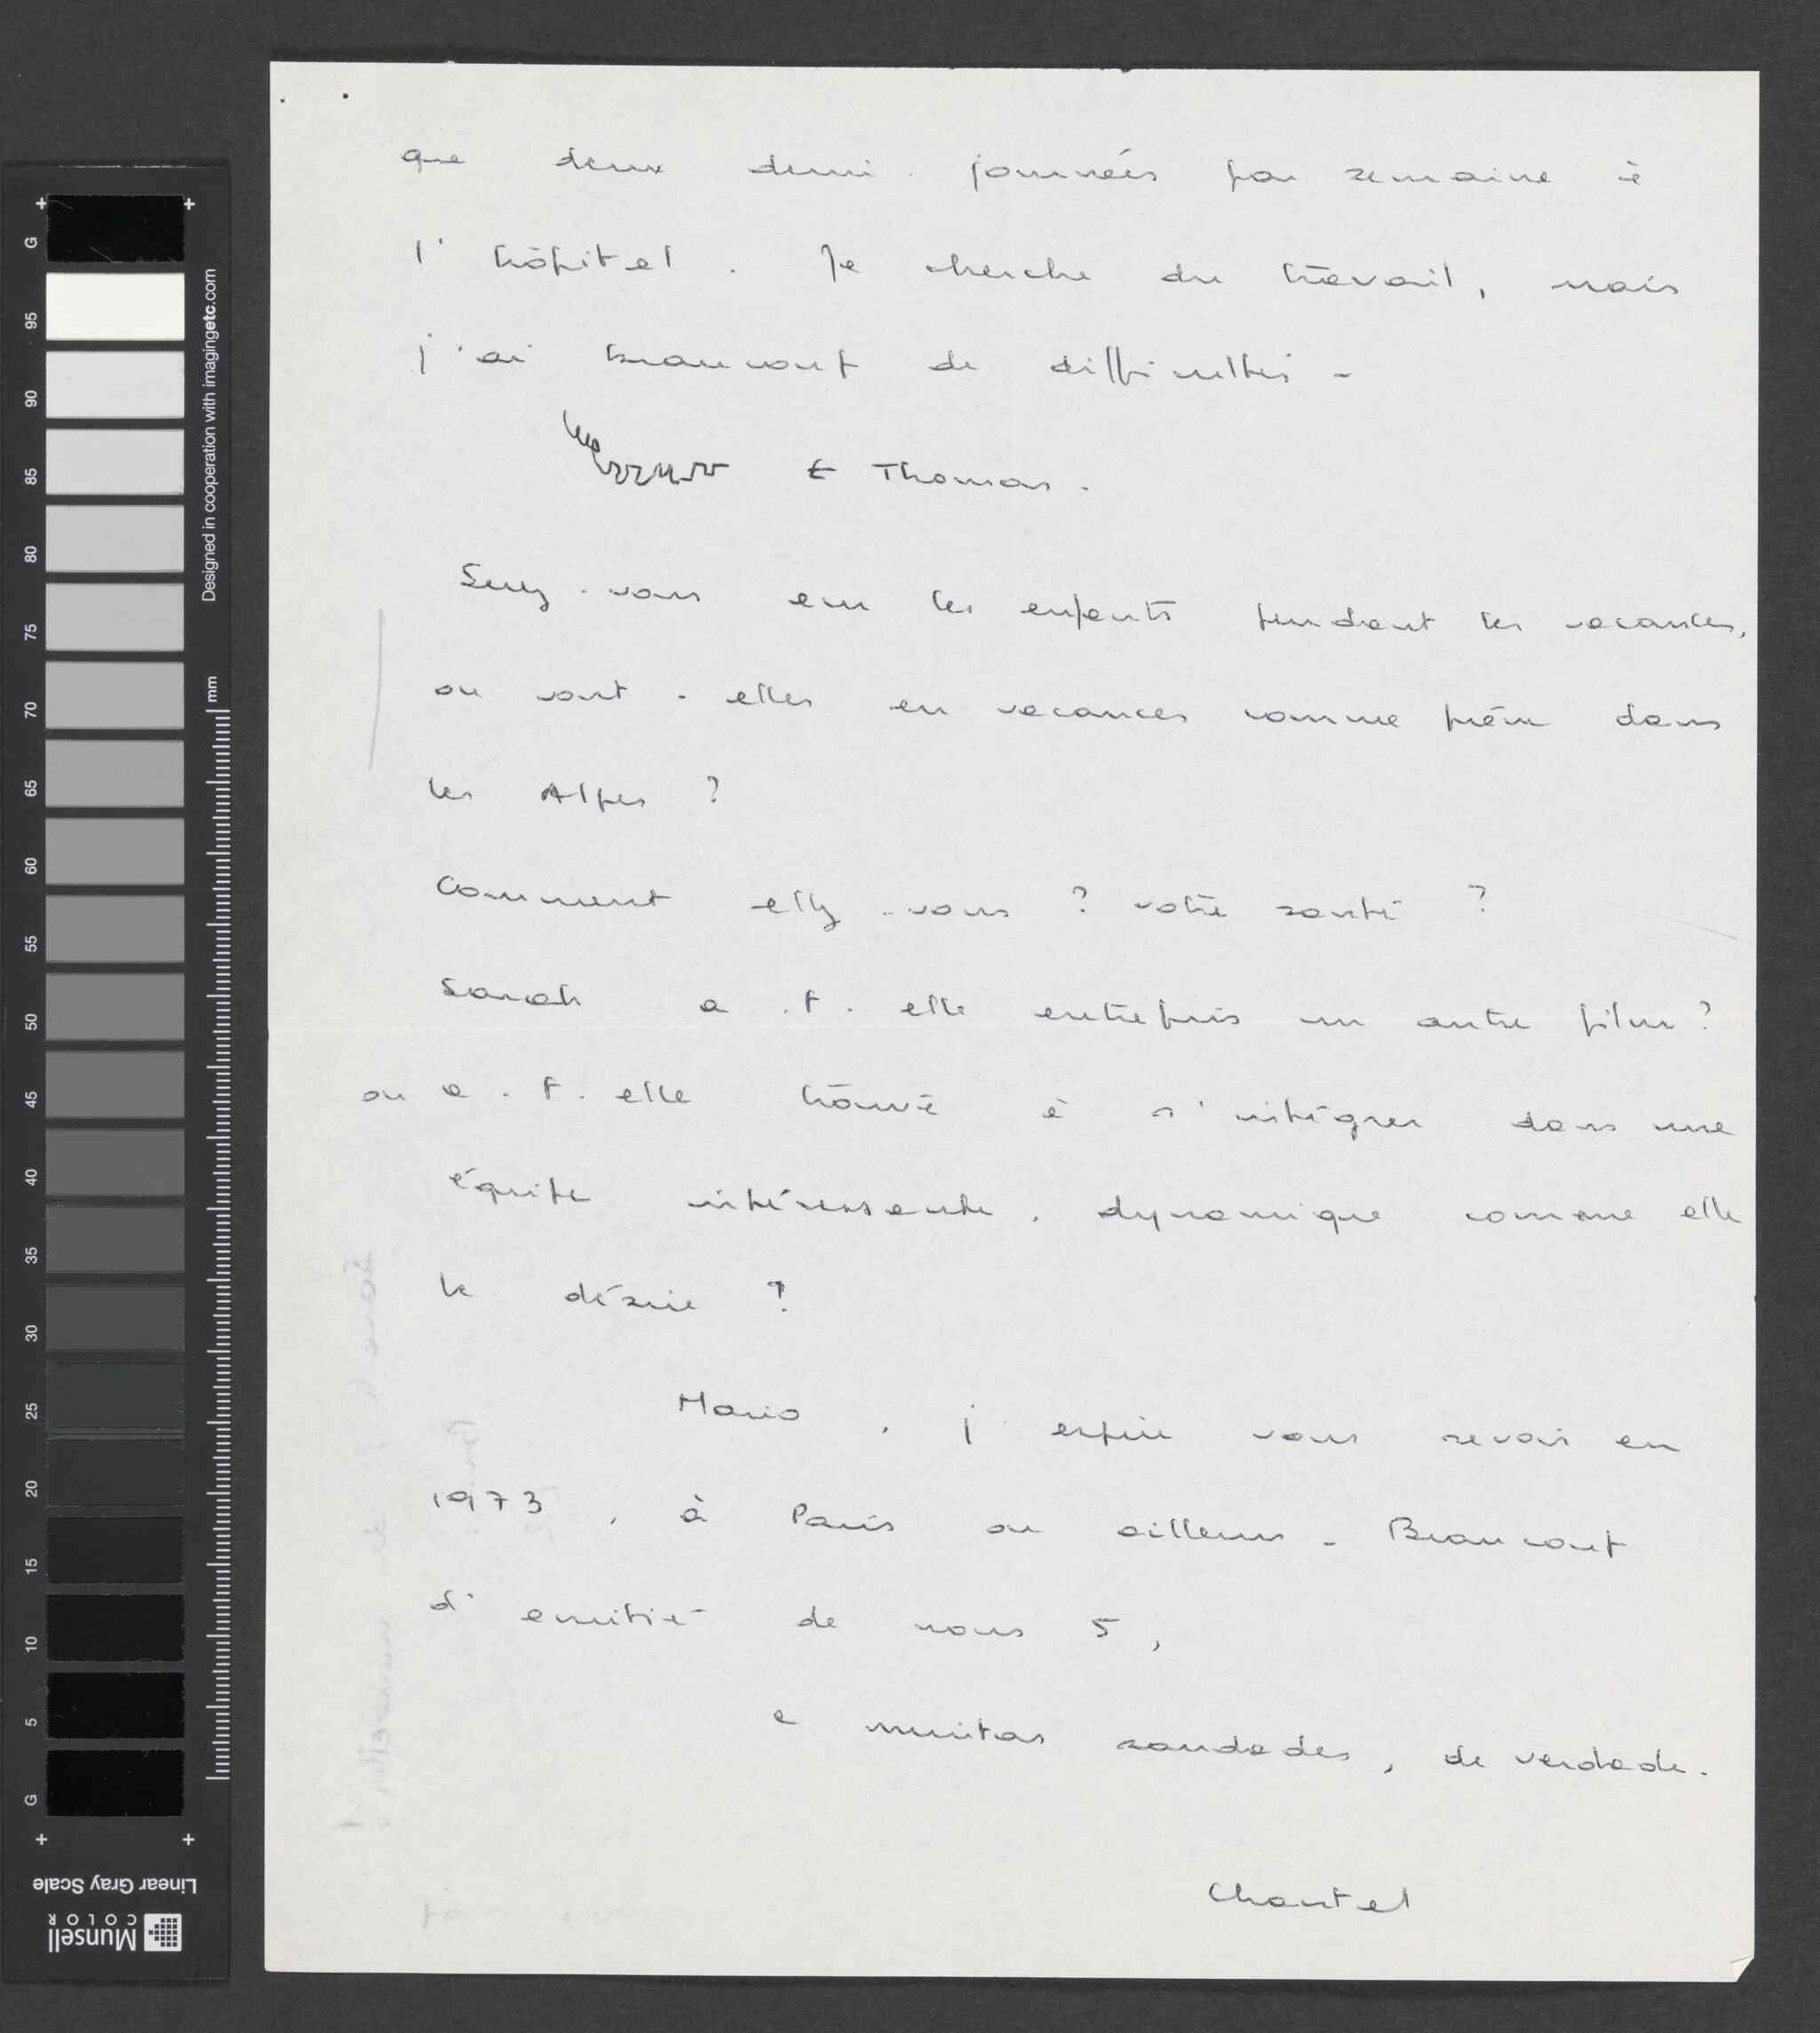 que deux demi-journées par semaine à
l'hôpital. Je cherche du travail, mais
j'ai beaucoup de difficultés -
Thomas.
Serez-vous avec les enfants pendant les vacances,
ou vont-elles en vacances comme prévu dans
les Alpes ?
Comment allez-vous ? votre santé ?
Sarah a-t-elle entrepris un autre film ?
ou a-t-elle trouvé à s'intégrer dans une
équipe intéressante, dynamique comme elle
le désire ?
Mario, j'espère vous revoir en
1973, à Paris ou ailleurs - Beaucoup
d'amitié de nous 5,
e muitas saudades, de verdade.
Chantal
G
95
90
85
80
75
70
65
60
55
50
45
40
35
30
25
20
15
10
5
G
Designed in cooperation with imagingetc.com
mm
Linear Gray Scale
Munsell
COLOR